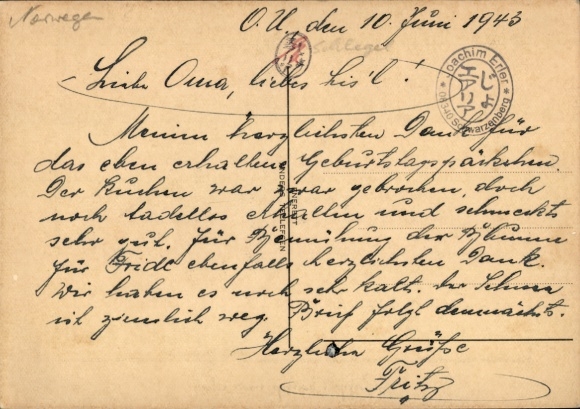 Norwegen
O.U., den 10. Juni 1943
Schlegel
Joachim Erler
じょ
エアリア
08340 Schwarzenberg
Liebe Oma, liebes his'l!
Meinen herzlichsten Dank für
das eben erhaltene Geburtstagspäckchen.
Der Kuchen war zwar gebrochen, doch
noch tadellos erhalten und schmeckt
sehr gut. Für Bemühung der Blumen
für Fridl ebenfalls herzlichsten Dank.
Wir haben es noch seh kalt. der Schnee
ist ziemlich weg. Brief folgt demnächst.
Herzlichen Grüße
Fritz
ENERETT